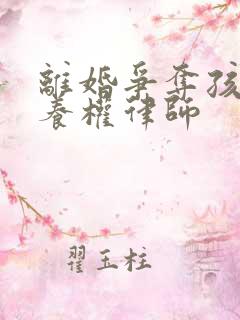 離婚爭奪孩
養權律師
翟玉柱